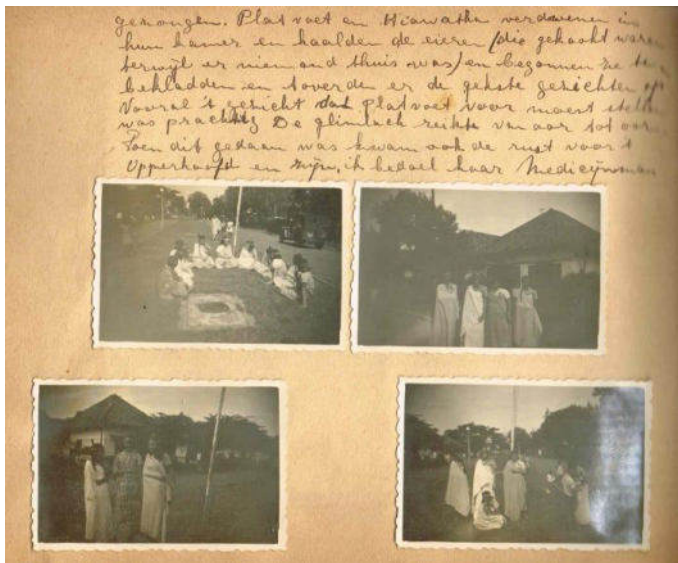 gezongen. Platvoet en Hiawatha verdwenen in
hun kamer en haalden de eieren (die gekookt waren
terwijl er niemand thuis was) en begonnen ze te
bekladden en toverden er de gekste gezichten op
Vooral 't gezicht dat platvoet voor moest stellen
was prachtig De glimlach reikte van oor tot oor
Toen dit gedaan was kwam ook de rust voor 't
Opperhoofd en zijn, ik bedoel haar Medicijnman